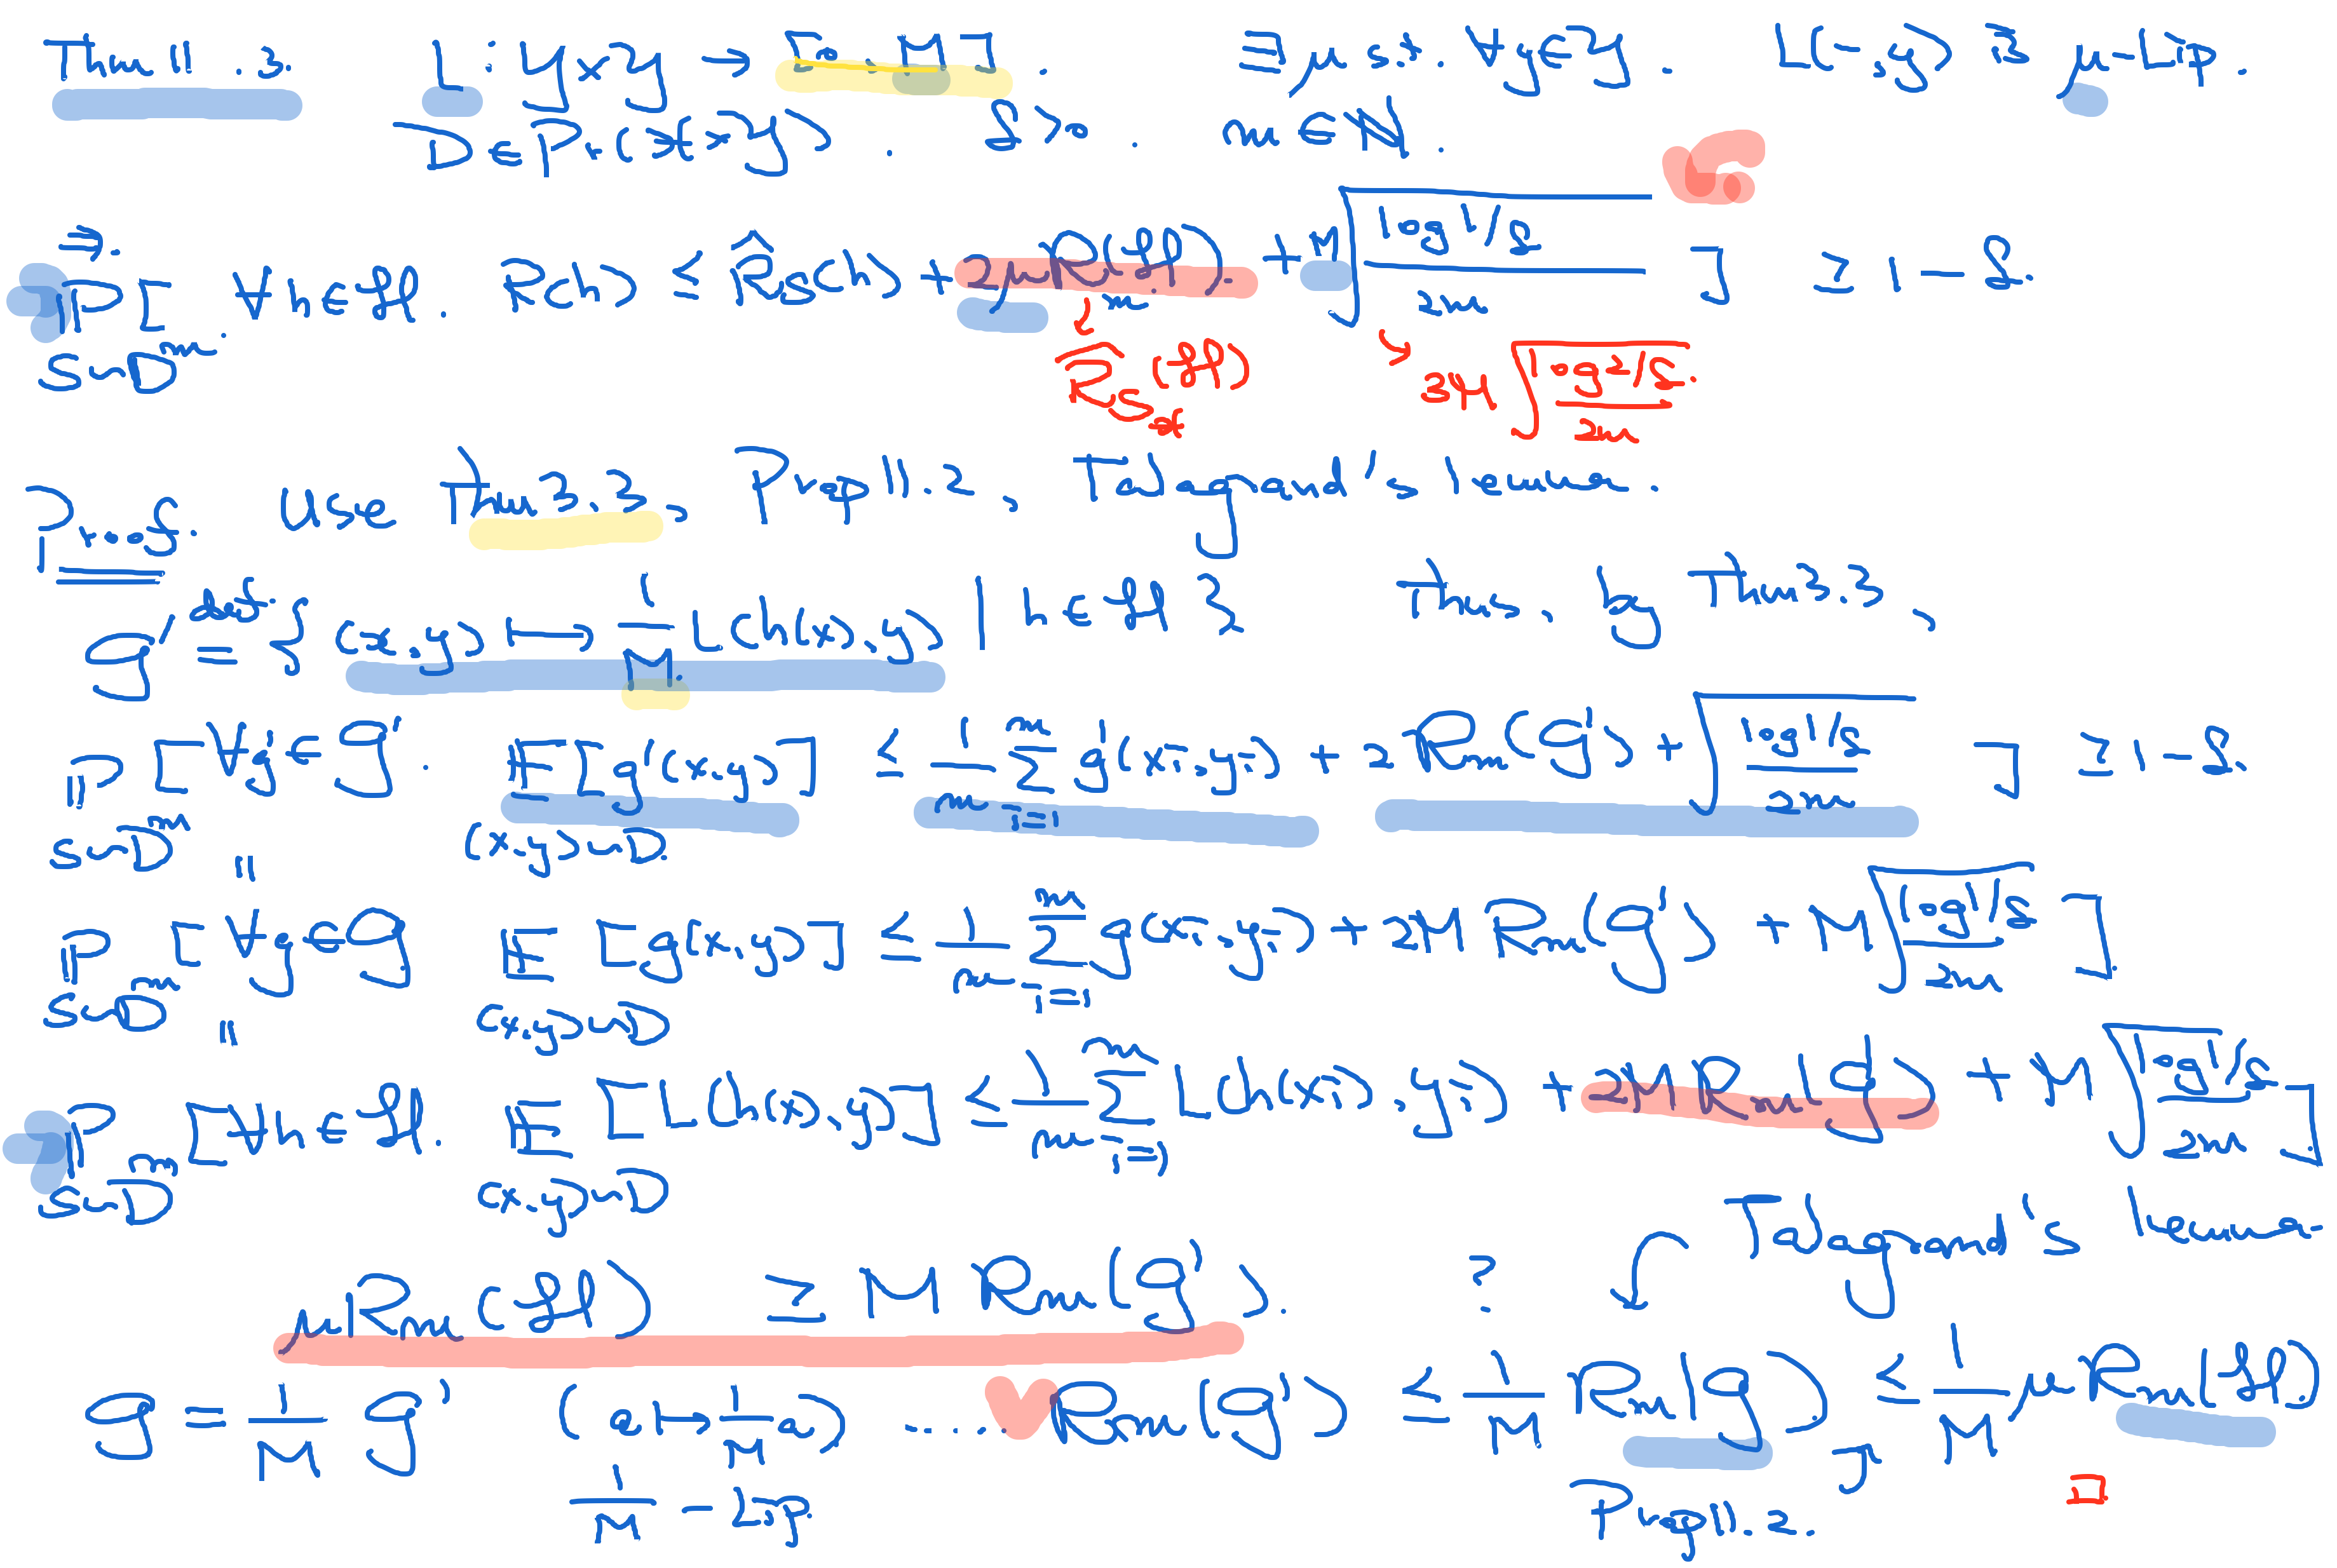 Thm 11.3. L : Y×Y → [0, M]. ∃μ s.t. ∀y∈Y. L(-,y) is μ-Lip.
D ∈ Pr(X×Y). δ>0. m∈ℕ.
⇒.
P_{S∼D^m}[ ∀h∈H. R(h) ≤ R̂_S(h) + 2μR_m(H) + M√(log 1/δ / 2m) ] ≥ 1-δ.
→ R̂_{S_X}(H) → 3M√(log 2/δ / 2m).
Proof. Use Thm 3.3, Prop 11.2, Talagrand's lemma.
G' =^{def} { (x,y) ↦ 1/M L(h(x),y) | h∈H } Thus, by Thm 3.3,
P_{S∼D^m}[ ∀g'∈G'. E_{(x,y)∼D}[g'(x,y)] ≤ 1/m Σ_{i=1}^m g'(x_i,y_i) + 2R_m(G') + √(log 1/δ / 2m) ] ≥ 1-δ.
=
P_{S∼D^m}[ ∀g∈G E_{(x,y)∼D}[g(x,y)] ≤ 1/m Σ_{i=1}^m g(x_i,y_i) + 2M R_m(G') + M√(log 1/δ / 2m) ].
=
P_{S∼D^m}[ ∀h∈H. E_{(x,y)∼D}[L(h(x),y)] ≤ 1/m Σ_{i=1}^m L(h(x_i),y_i) + 2M R_m(G') + M√(log 1/δ / 2m) ]
Talagrand's lemma.
μR_m(H) ≥ M R_m(G'). ?
G = 1/M G' (a ↦ 1/M a) ..... R_m(G') ≤ 1/M R_m(G) ≤ 1/M μR_m(H)
1/M - Lip. Prop 11.2. □